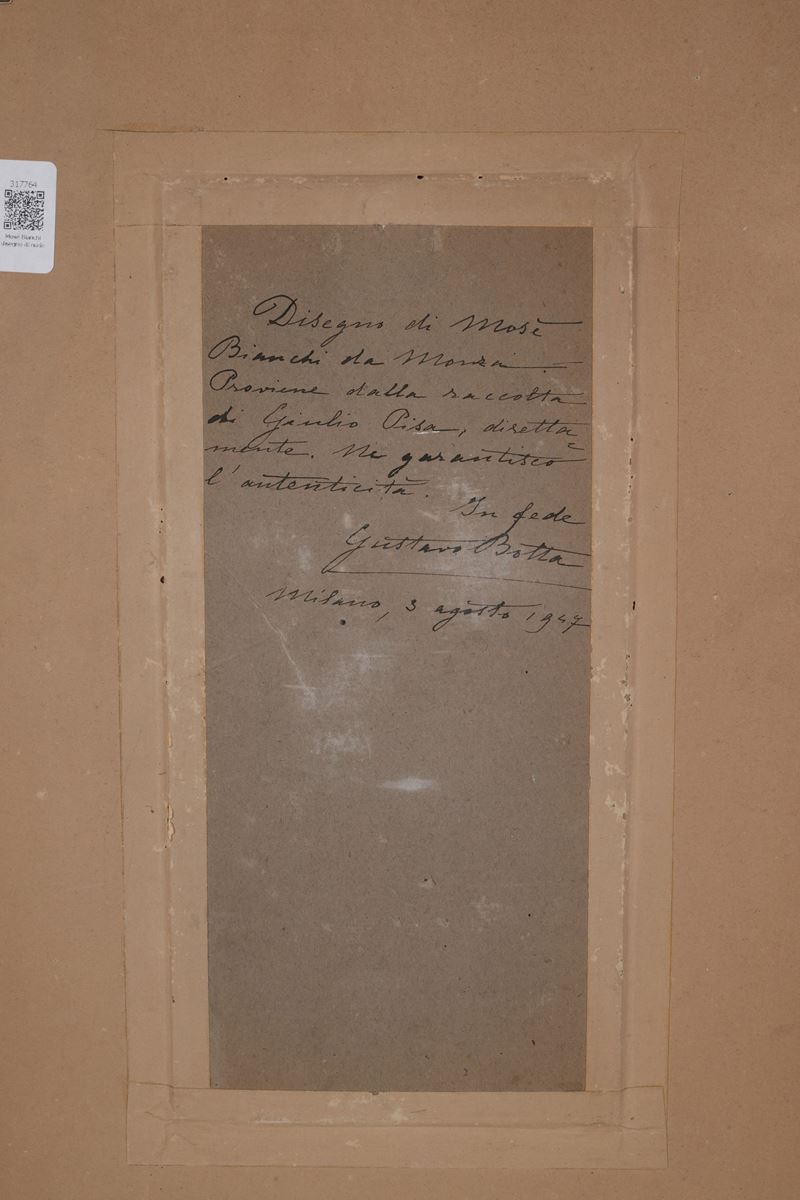 317764
Mosè Bianchi
disegno di nudo
Disegno di Mosè
Bianchi da Monza —
Proviene dalla raccolta
di Giulio Pisa, diretta=
mente. Ne garantisco
l'autenticità.
In fede
Gustavo Botta
Milano, 3 agosto 1947